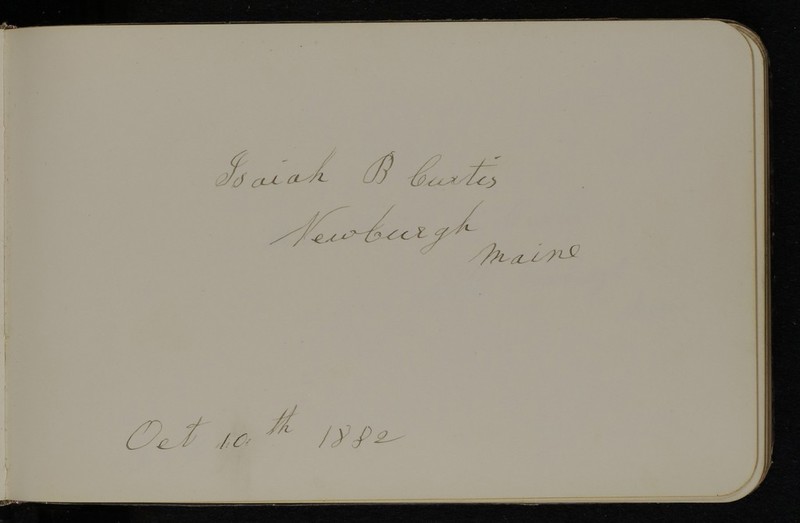 Isaiah B Curtis
Newburgh
Maine
Oct 10th 1882